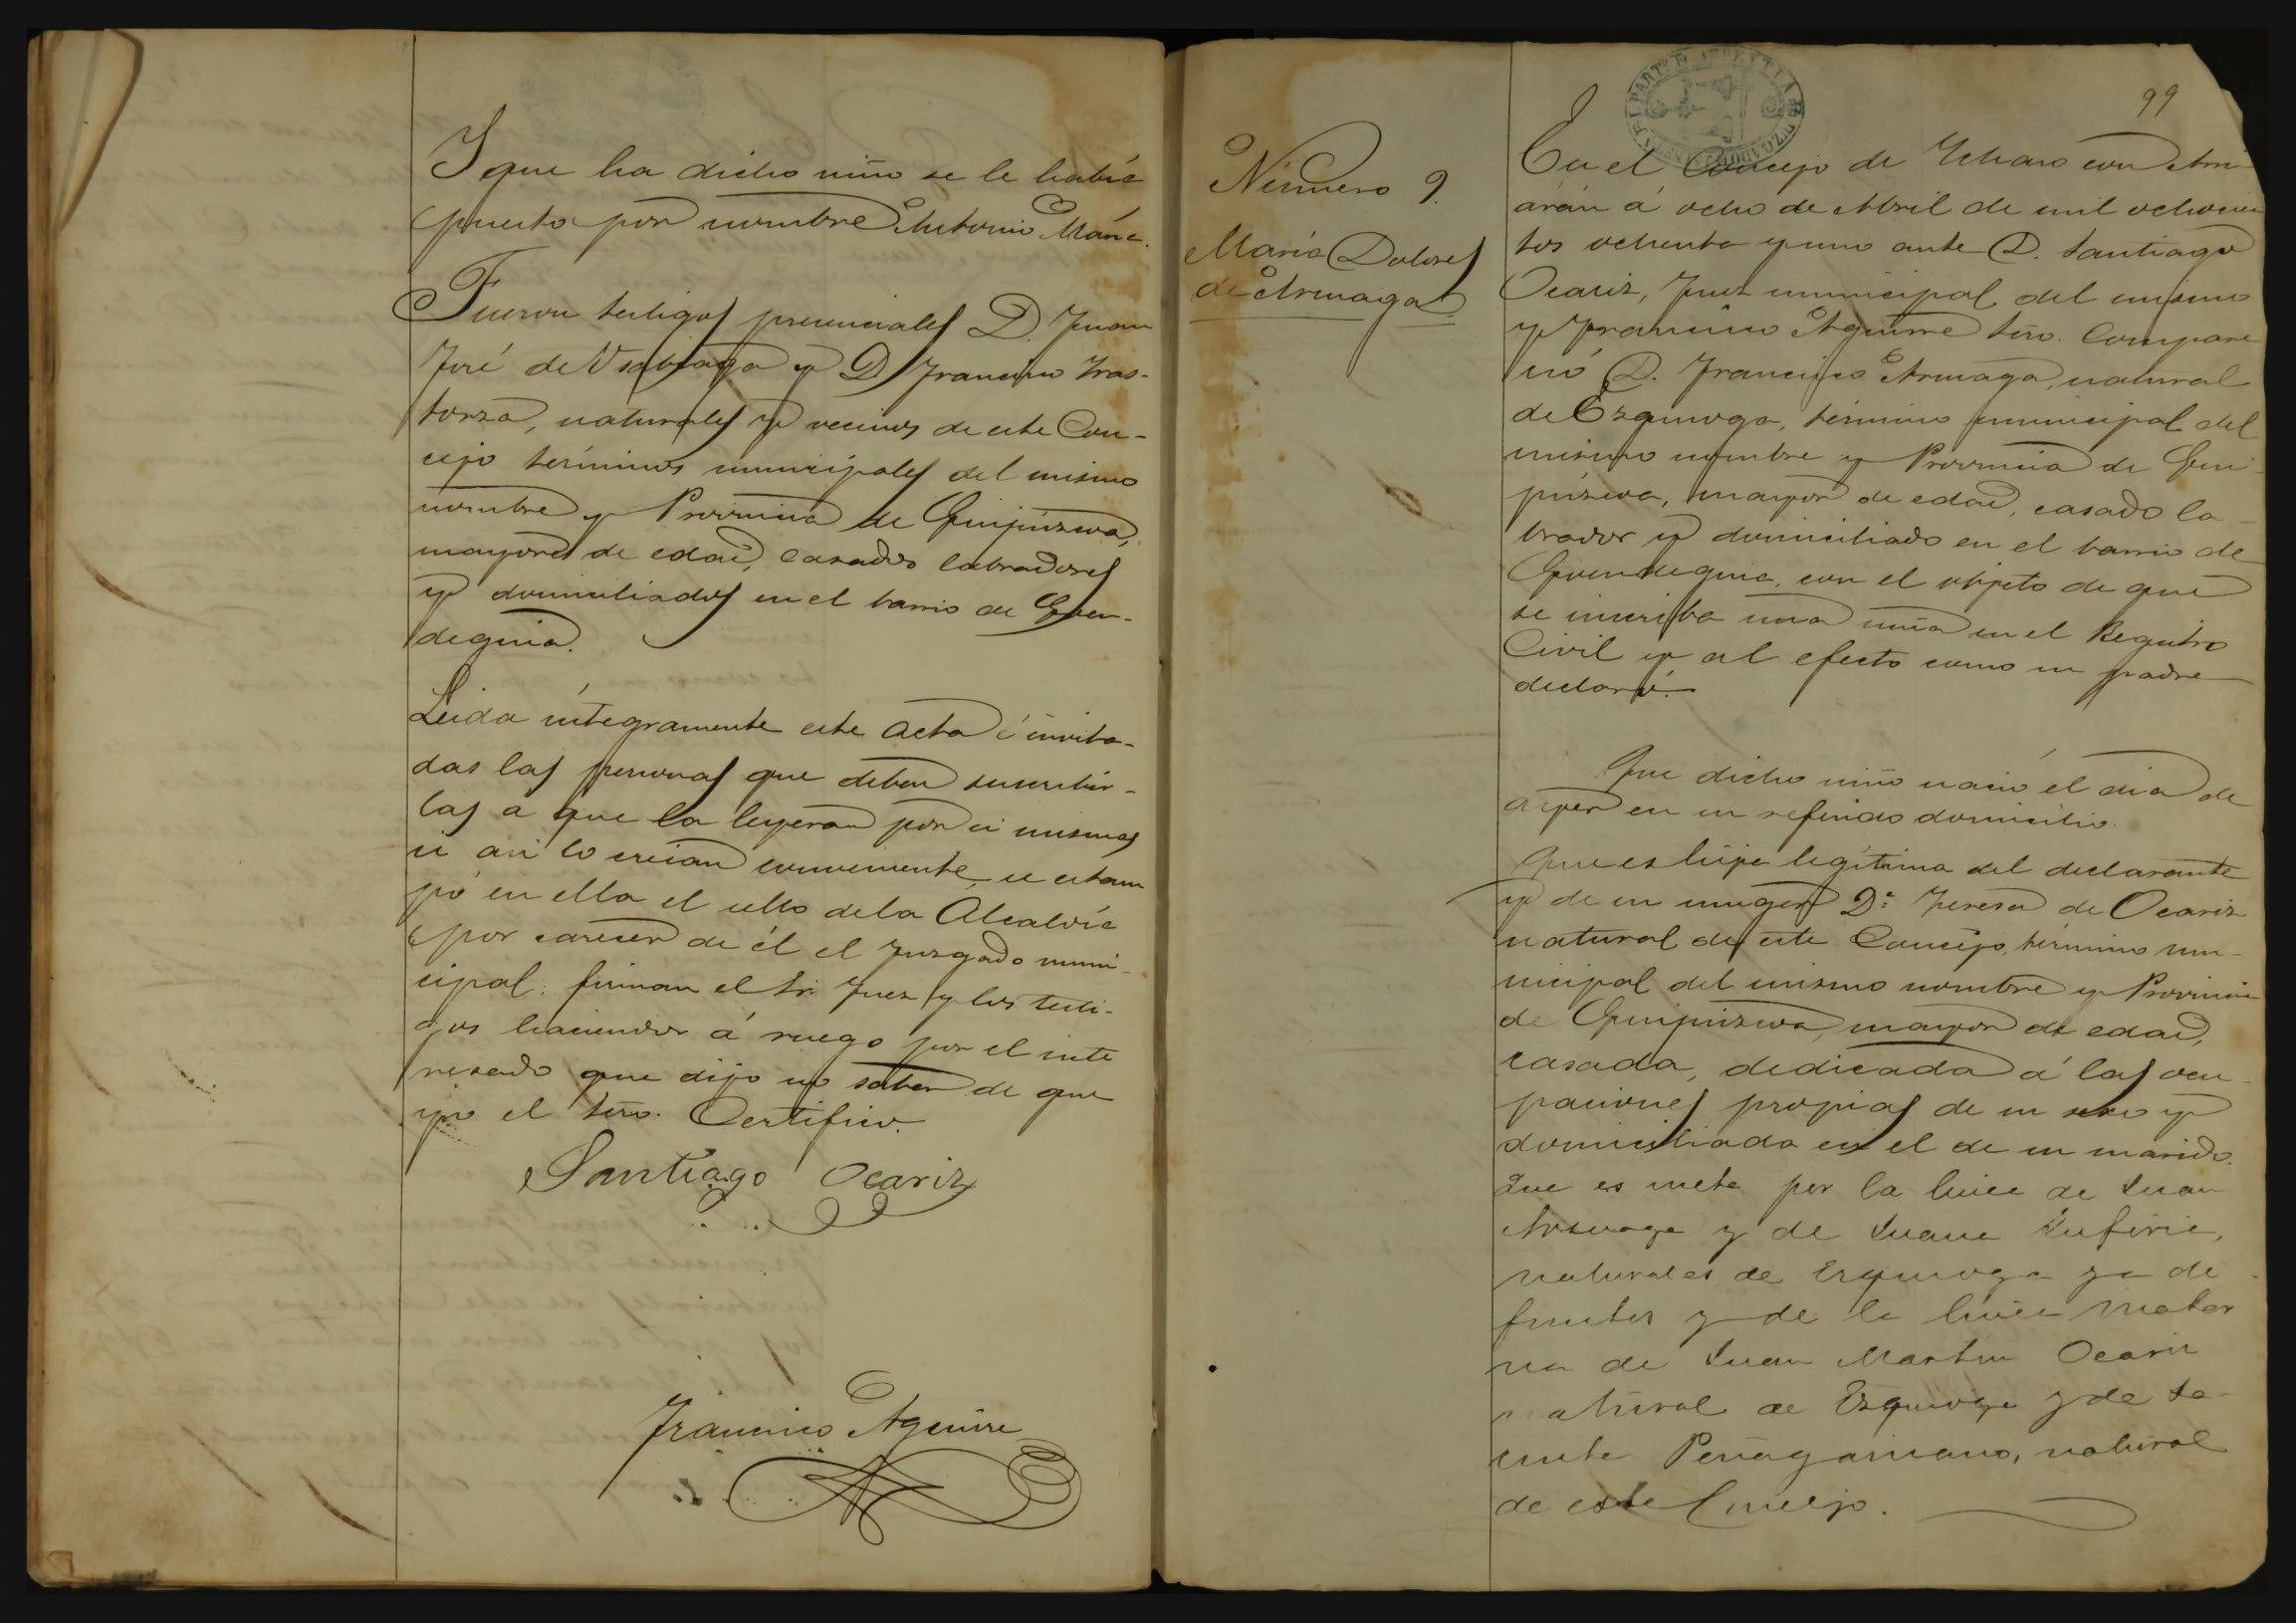 Y que ha dicho niño se le habia
puesto por nombre Antonio Maria.
Fueron testigos presenciales D. Juan
José de Usabiaga y D. Francisco Iras-
torza, naturales y vecinos de este Con-
cejo términos municipales del mismo
nombre y Provincia de Guipúzcoa,
mayores de edad, casados labradores
y domiciliados en el barrio de Goen-
deguia.
Leida íntegramente este acta é invita-
das las personas que deben suscribir-
las a que la leyeran por si mismas
si asi lo creian conveniente, se estam
pó en ella el sello de la Alcaldía
por carecer de él el Juzgado muni-
cipal: firman el Sr. Juez y los testi-
gos haciendor á ruego por el inte
resado que dijo no saber de que
yo el Srio. Certifico.
Santiago Ocariz
Francisco Aguirre
99
Número 9.
María Dolores
de Armaga
En el Concejo de Ichaso con Arri-
arán á ocho de Abril de mil ochocien
tos ochenta y uno ante D. Santiago
Ocariz, Juez municipal del mismo
y Francisco Aguirre Srio. Compare
ció D. Francisco Armaga, natural
de Ezquioga, término municipal del
mismo nombre y Provincia de Gui-
púzcoa, mayor de edad, casado la-
brador y domiciliado en el barrio de
Goendeguia, con el objeto de que
se inscriba una niña en el Registro
Civil y al efecto como su padre
declaró.
Que dicho niño nació el dia de
ayer en su referido domicilio.
Que es hija legítima del declarante
y de su muger D.ª Teresa de Ocariz
natural de este Concejo, término mu-
nicipal del mismo nombre y Provincia
de Guipúzcoa, mayor de edad,
casada, dedicada á las ocu-
paciones propias de su sexo y
domiciliada en el de su marido.
Que es nieta por la linea de Juan
y de Juana
naturales de Ezquioga ya di-
funtos y de la linea mater
na de Juan Martin Ocariz
natural de Ezquioga y de
Peñagaricano, natural
de este Concejo.